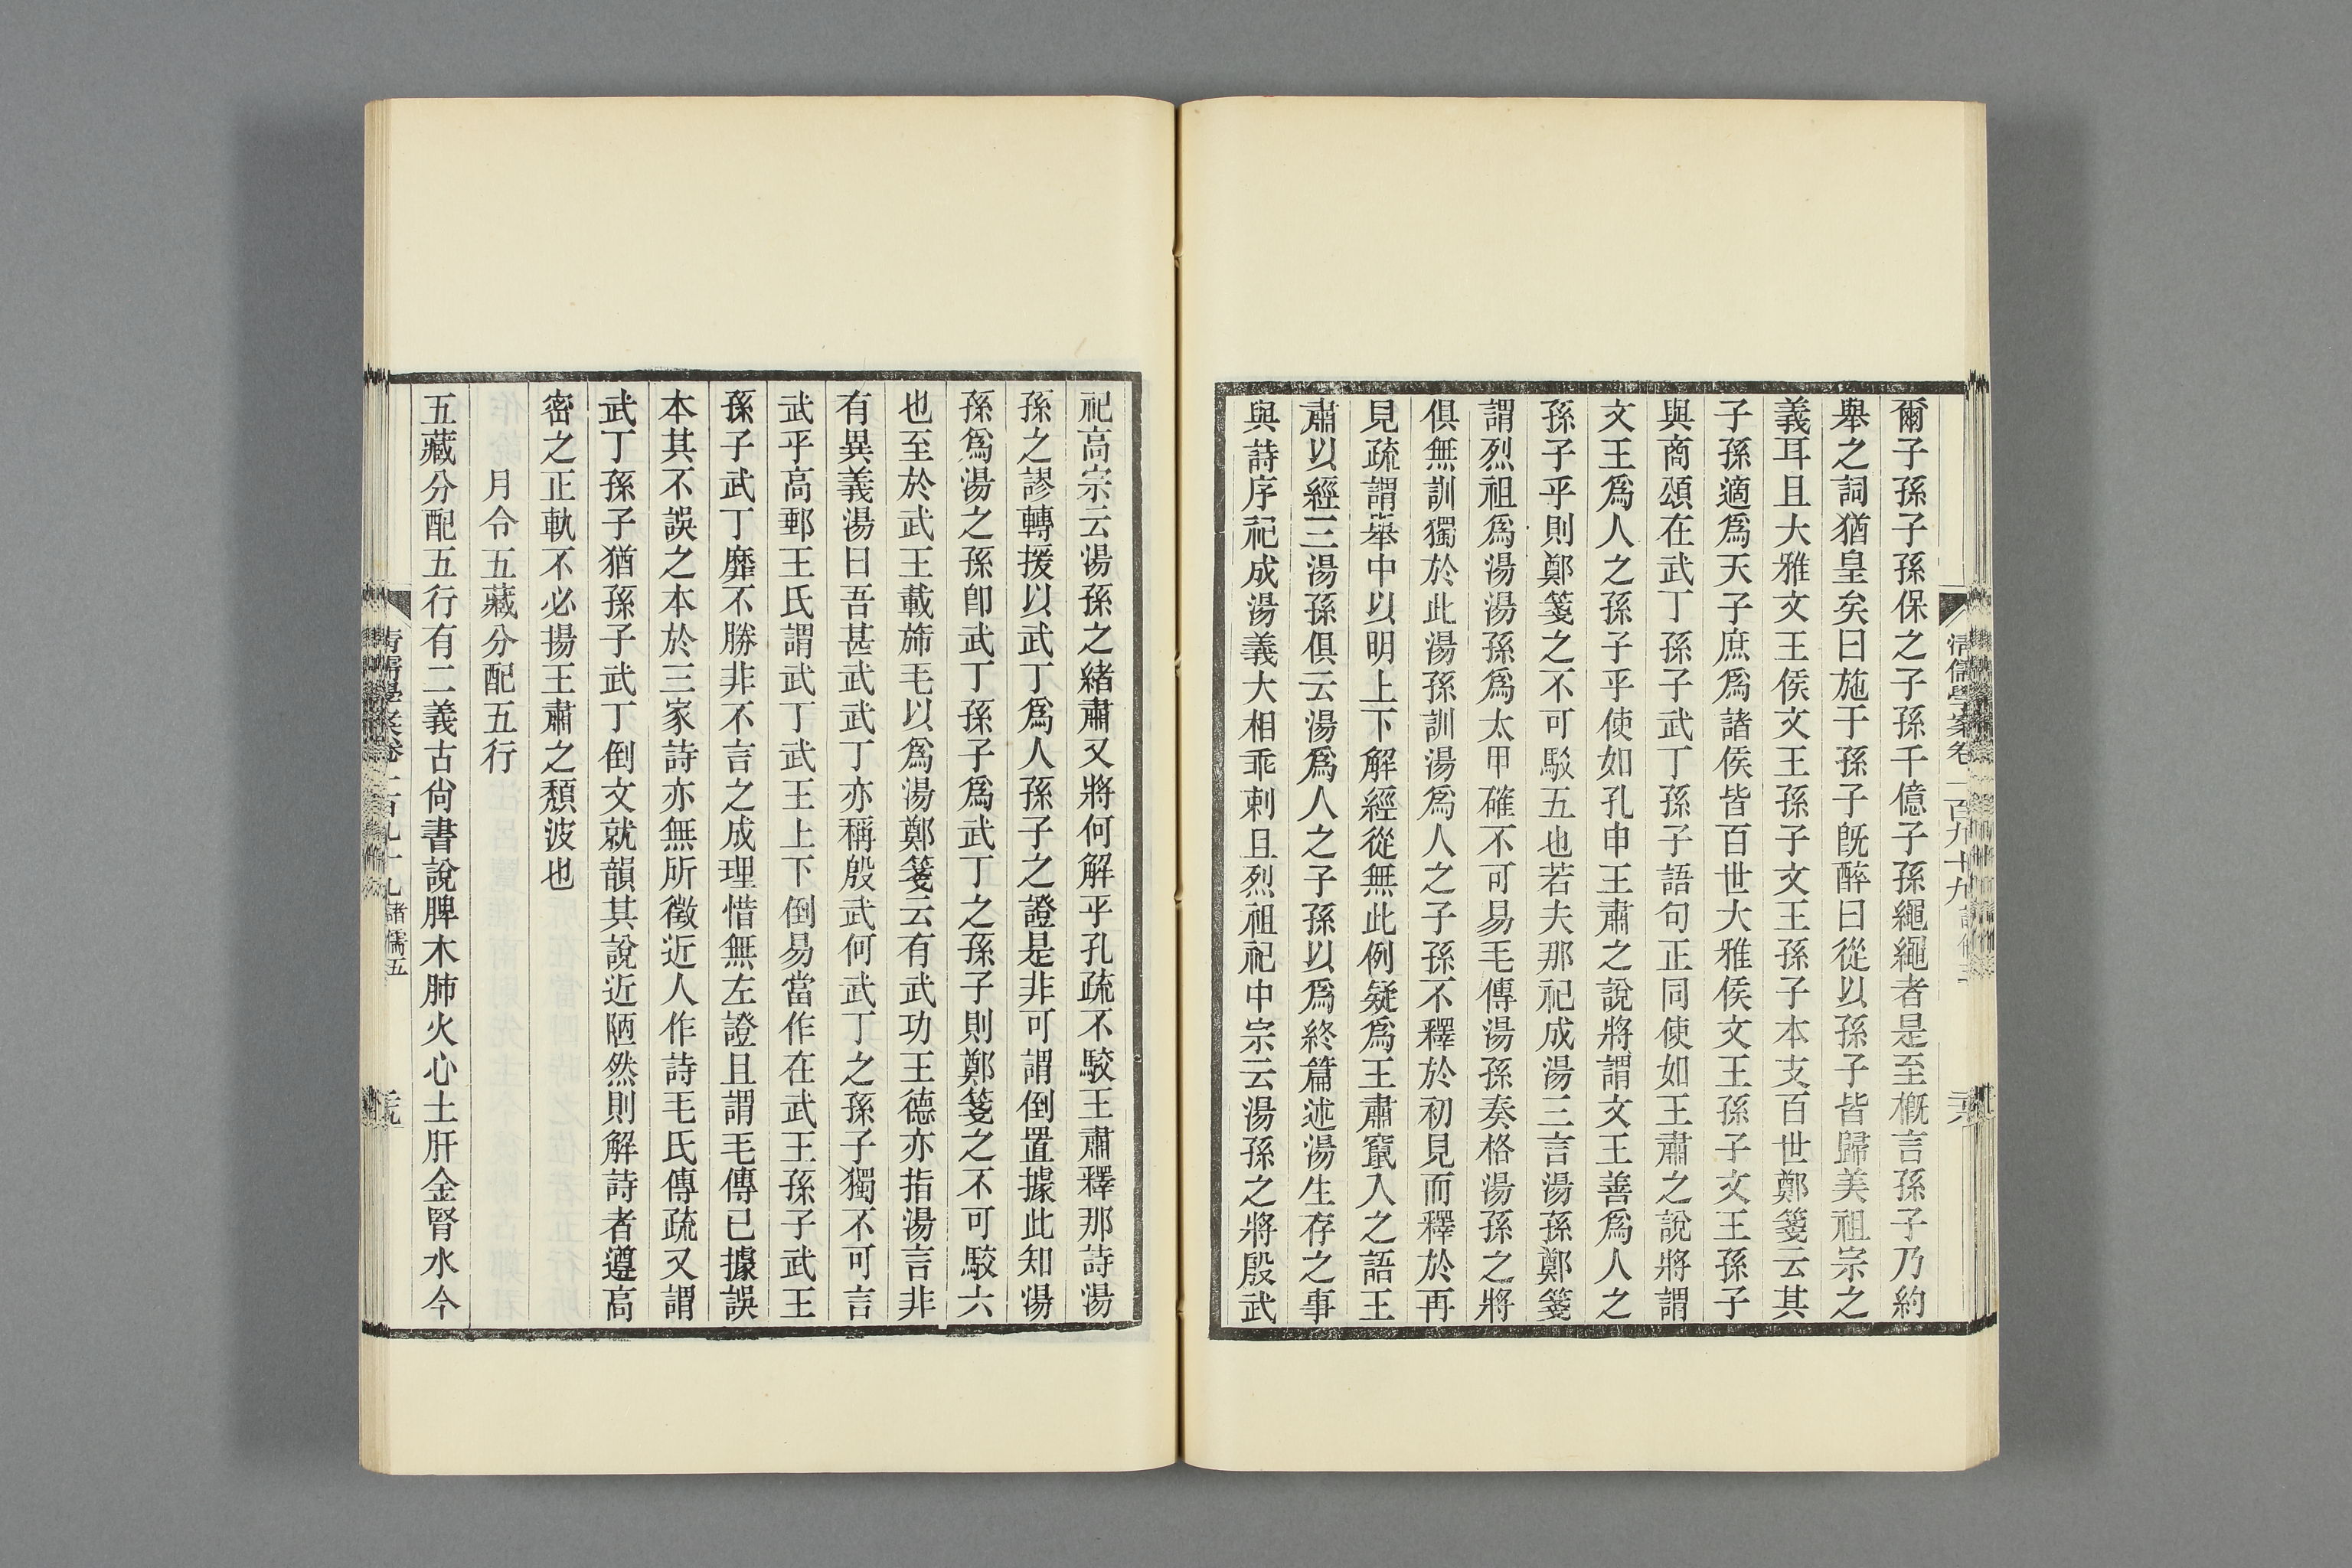 清儒學案卷一百九十九
爾子孫子孫保之子孫千億子孫繩繩者是至槪言孫子乃約
舉之詞猶皇矣曰施于孫子旣醉曰從以孫子皆歸美祖宗之
義耳且大雅文王侯文王孫子文王孫子本支百世鄭箋云其
子孫適爲天子庶爲諸侯皆百世大雅侯文王孫子文王孫子
與商頌在武丁孫子武丁孫子語句正同使如王肅之說將謂
文王爲人之孫子乎使如孔申王肅之說將謂文王善爲人之
孫子乎則鄭箋之不可駁五也若夫那祀成湯三言湯孫鄭箋
謂烈祖爲湯湯孫爲太甲確不可易毛傳湯孫奏格湯孫之將
俱無訓獨於此湯孫訓湯爲人之子孫不釋於初見而釋於再
見疏謂舉中以明上下解經從無此例疑爲王肅竄入之語王
肅以經三湯孫俱云湯爲人之子孫以爲終篇述湯生存之事
與詩序祀成湯義大相乖剌且烈祖祀中宗云湯孫之將殷武
祀高宗云湯孫之緒肅又將何解乎孔疏不駮王肅釋那詩湯
孫之謬轉援以武丁爲人孫子之證是非可謂倒置據此知湯
孫爲湯之孫卽武丁孫子爲武丁之孫子則鄭箋之不可駮六
也至於武王載斾毛以爲湯鄭箋云有武功王德亦指湯言非
有異義湯曰吾甚武武丁亦稱殷武何武丁之孫子獨不可言
武乎高郵王氏謂武丁武王上下倒易當作在武王孫子武王
孫子武丁靡不勝非不言之成理惜無左證且謂毛傳已據誤
本其不誤之本於三家詩亦無所徵近人作詩毛氏傳疏又謂
武丁孫子猶孫子武丁倒文就韻其說近陋然則解詩者遵高
密之正軌不必揚王肅之頹波也
月令五藏分配五行
五藏分配五行有二義古尙書說脾木肺火心土肝金腎水今
諸儒五